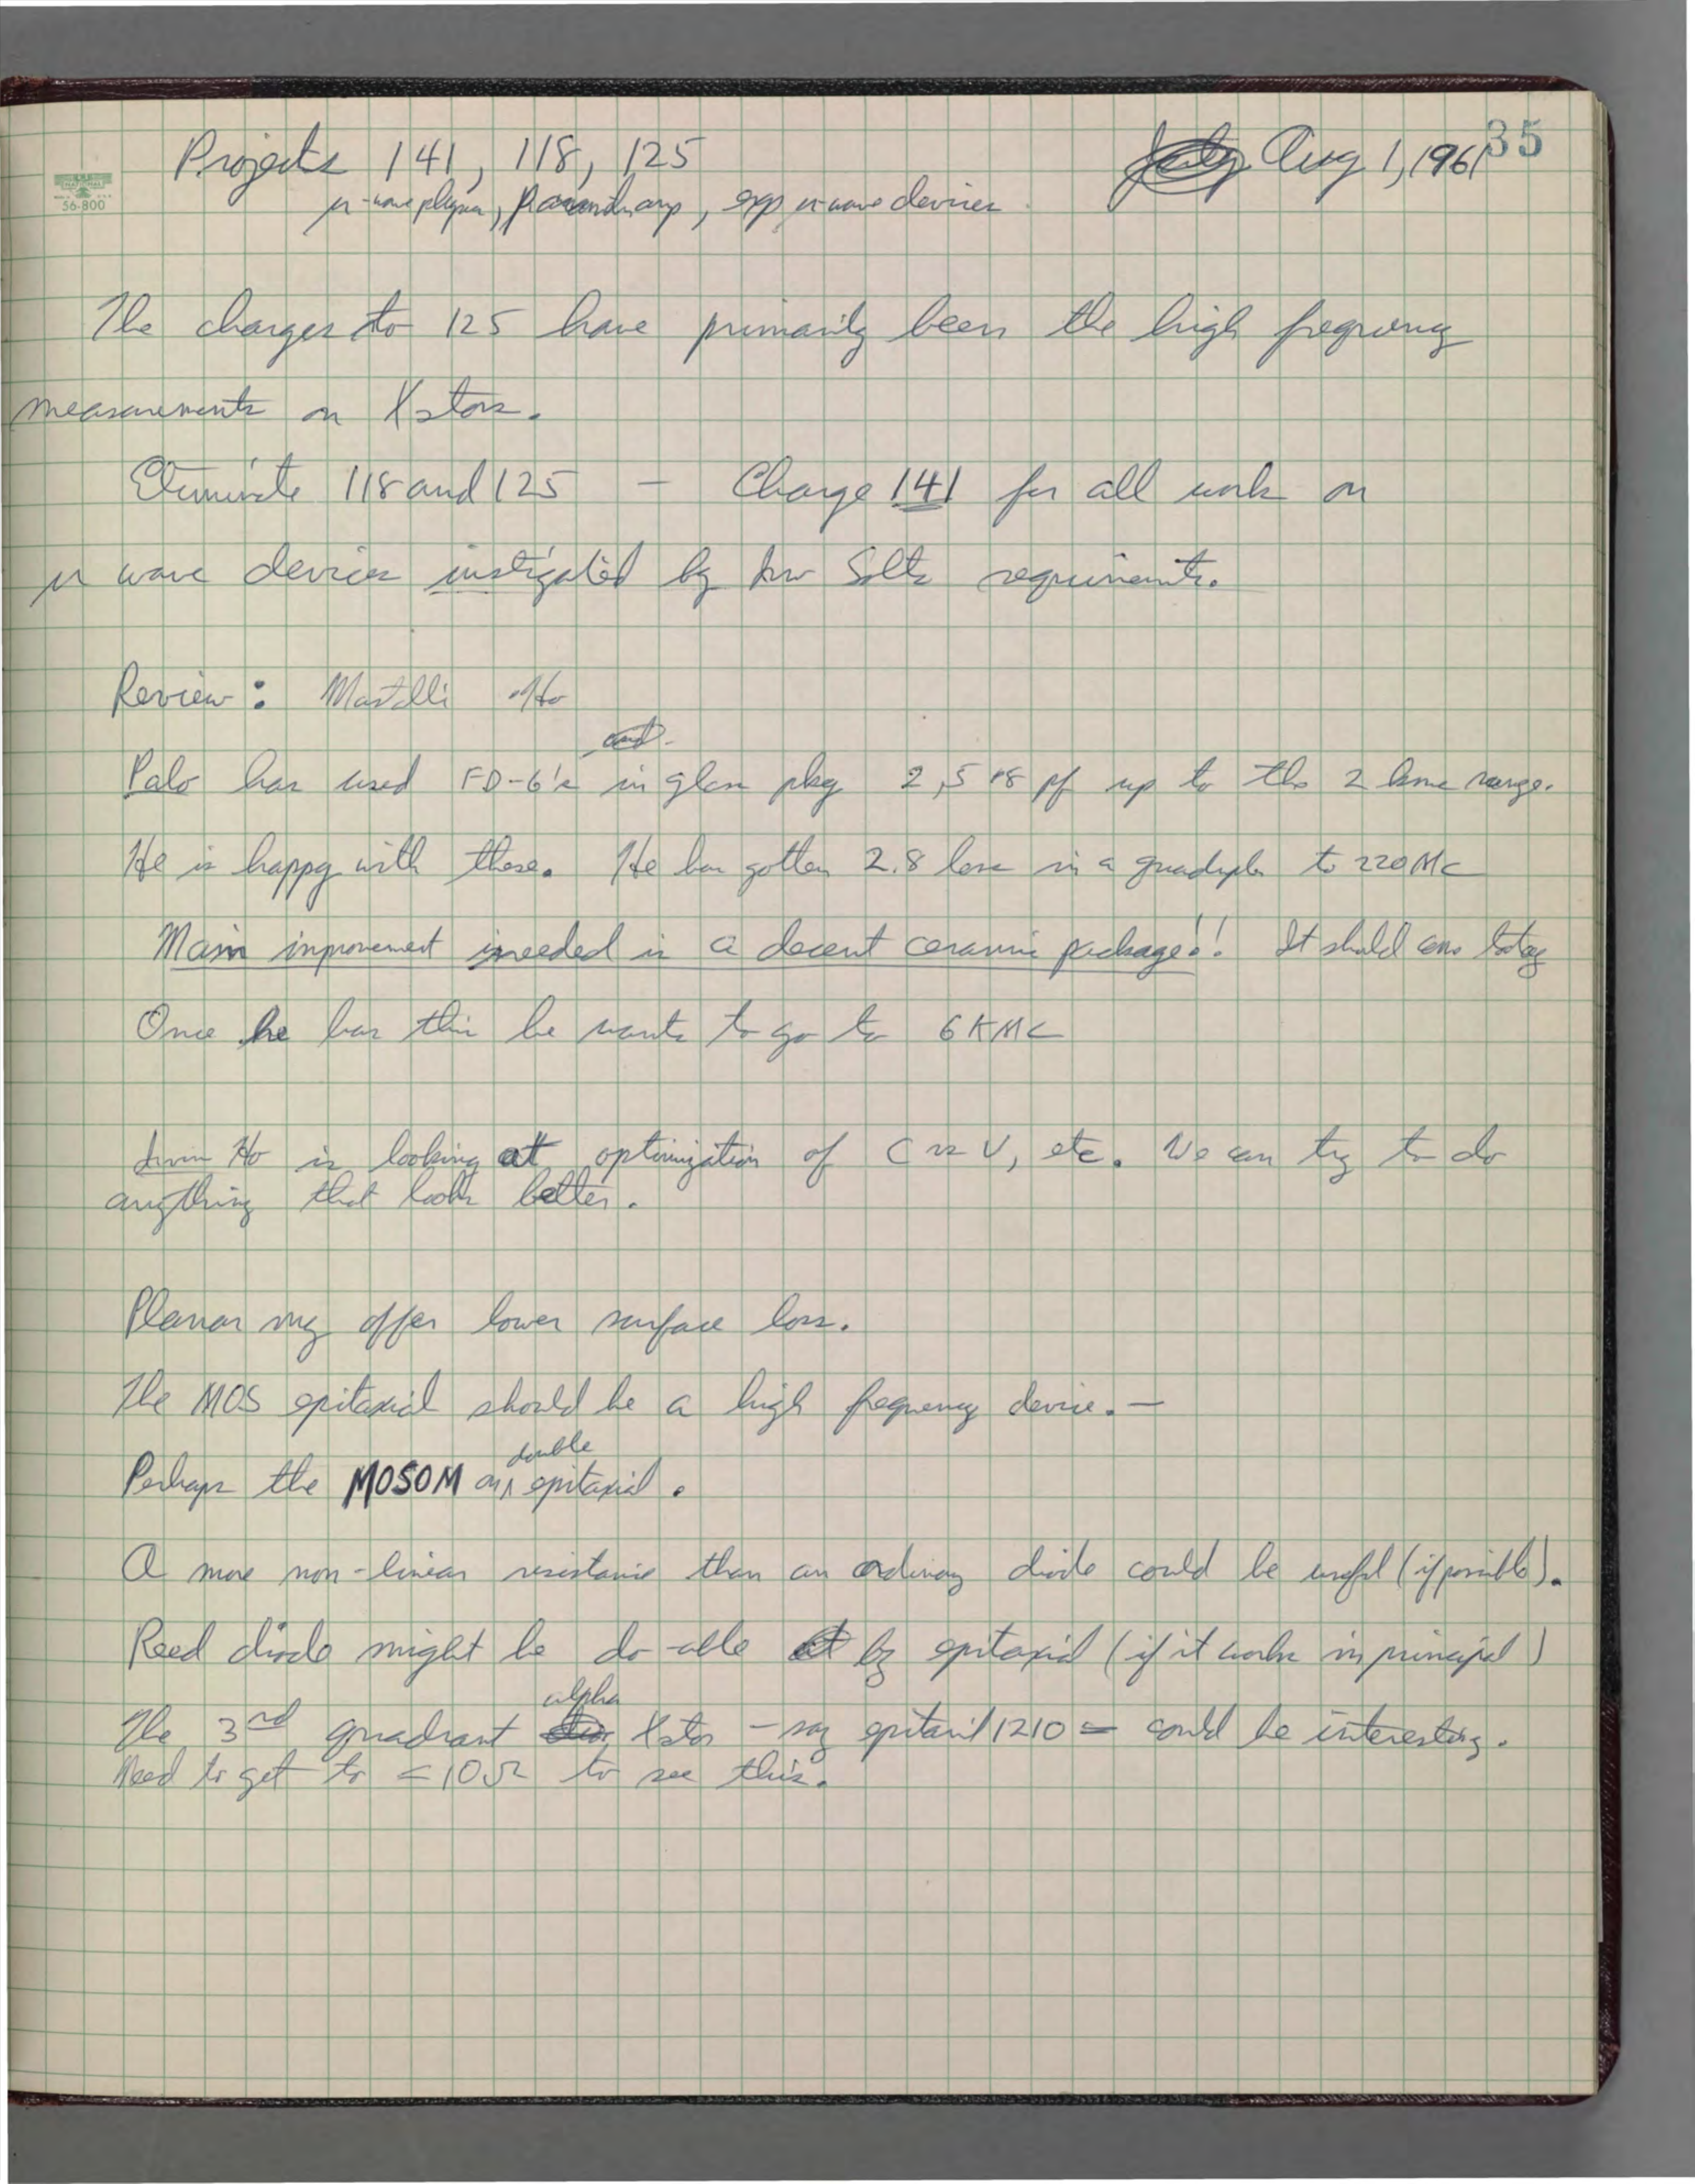 35
Projects 141, 118, 125 July Aug 1, 1961
NATIONAL
56-800
μ-wave physics, param amp, exp μ-wave devices
The charges to 125 have primarily been the high frequency
measurements on Xstors.
Eliminate 118 and 125 — Charge 141 for all work on
μ wave devices instigated by Irw Solts requirements.
Review: Ho
and
Palo has used FD-6's in glass pkg 2,5 +8 pf up to the 2 kmc range.
He is happy with these. He has gotten 2.8 loss in a quadrupler to 220 MC
Main improvement needed is a decent ceramic package!! It should
Once he has this he wants to go to 6 KMC
Irwin Ho is looking at optimization of C vs V, etc. We can try to do
anything that looks better.
Planar may offer lower surface loss.
The MOS epitaxial should be a high frequency device. —
double
Perhaps the MOSOM on ∧ epitaxial.
A more non-linear resistance than an ordinary diode could be useful (if possible).
Reed diode might be do-able by epitaxial (if it works in principal)
alpha
The 3rd quadrant Xstor - say epitaxial 1210 = could be interesting.
Need to get to ≤ 10Ω to see this.